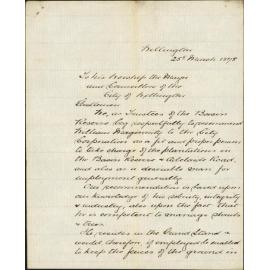 Wellington
25th March 1878
To his Worship the Mayor
and Councillors of the
City of Wellington
Gentlemen
We, as Trustees of the Basin
Reserve beg respectfully to recommend
William to the City
Corporation as a fit and proper person
to take charge of the plantations in
the Basin Reserve & Adelaide Road,
and also as a desirable man for
employment generally.
Our recommendation is based upon
our knowledge of his sobriety, integrity
& industry, also upon the fact that
he is competent to manage shrubs
& trees.
He resides in the Grand Stand &
would, therefore, if employed be enabled
to keep the fences of the ground in